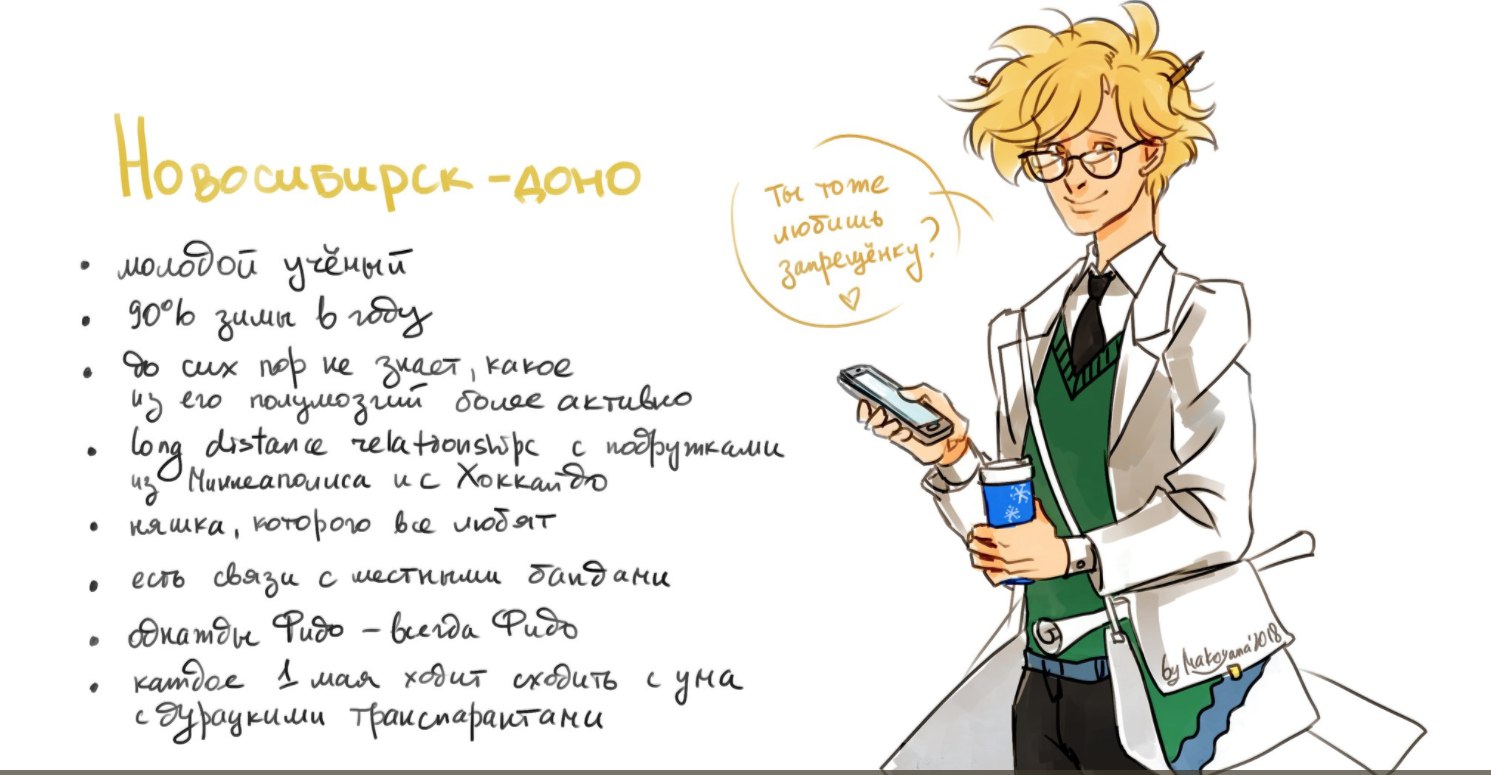 Новосибирск-доно
• молодой учёный
• 90% зимы в году
• до сих пор не знает, какое
из его полумозгий более активно
• long distance relationships с подружками
из Миннеаполиса и с Хоккайдо
• няшка, которого все любят
• есть связи с местными бандами
• однажды Фидо – всегда Фидо
• каждое 1 мая ходит сходить с ума
с дурацкими транспарантами
Ты тоже
любишь
запрещёнку?
♡
by Makoyana'2018